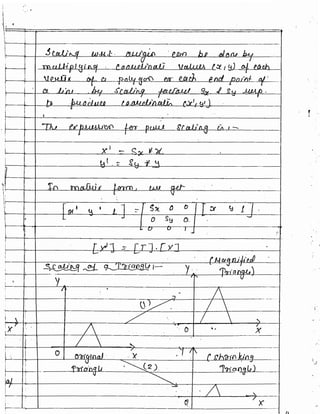 Scaling w.r.t. origin can be done by
multiplying coordinate values (x, y) of each
vertex of a polygon or each end point of
a line by scaling factors Sx & Sy resp.
to produce coordinates (x', y').
The expression for pure scaling is :-
x' = Sx * x
y' = Sy * y
In matrix form, we get
[x' y' 1] = [Sx 0 0 0 Sy 0 0 0 1] [x y 1]
[x'] = [T] . [x]
Scaling of a Triangle :-
(Magnified
Triangle)
y
y
(1)
x
0
x
0
original
Triangle
x
(2)
y
(Shrinking
Triangle)
0
x